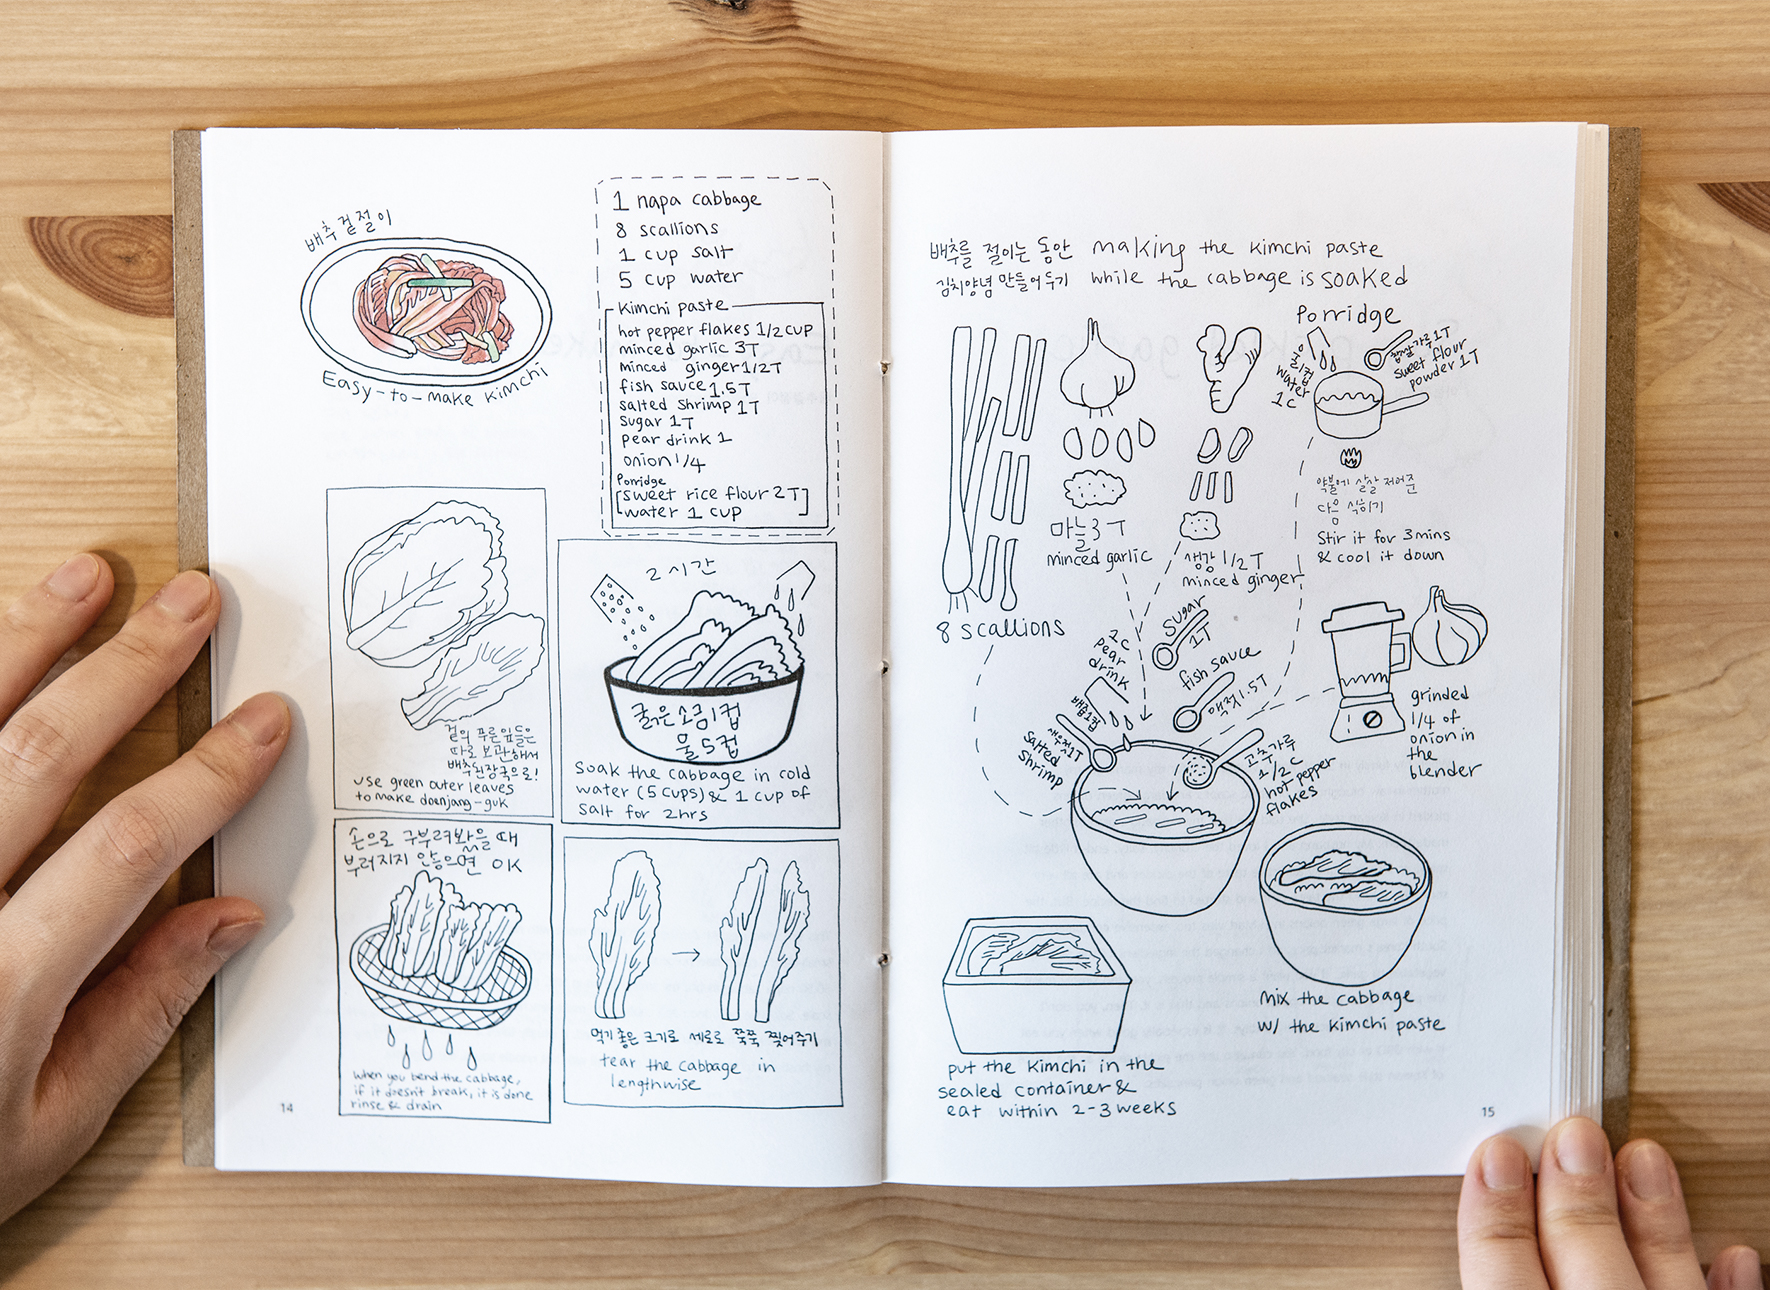 배추 겉절이
Easy-to-make kimchi
1 napa cabbage
8 scallions
1 cup salt
5 cup water
kimchi paste
hot pepper flakes 1/2 cup
minced garlic 3T
minced ginger 1/2T
fish sauce 1.5T
salted shrimp 1T
sugar 1T
pear drink 1
onion 1/4
Porridge
[sweet rice flour 2T]
[water 1 cup]
겉의 푸른잎들은
따로 보관해서
배추된장국으로!
use green outer leaves
to make doenjang-guk
2시간
굵은소금1컵
물5컵
soak the cabbage in cold
water (5cups) & 1 cup of
salt for 2hrs
손으로 구부려봤을 때
부러지지 않으면 OK
when you bend the cabbage,
if it doesn't break, it is done
rinse & drain
먹기 좋은 크기로 세로로 쭉쭉 찢어주기
tear the cabbage in
lengthwise
14
배추를 절이는 동안 making the kimchi paste
김치양념 만들어두기 while the cabbage is soaked
Porridge
물1컵
water
1C
찹쌀가루1T
sweet flour
powder 1T
약불에 살살 저어준
다음 식히기
Stir it for 3mins
& cool it down
마늘3T
minced garlic
생강 1/2T
minced ginger
8 scallions
2C
pear
drink
배음료1컵
sugar
1T
fish sauce
액젓1.5T
새우젓1T
salted
shrimp
고추가루
1/2C
hot pepper
flakes
grinded
1/4 of
onion in
the
blender
mix the cabbage
w/ the kimchi paste
put the kimchi in the
sealed container &
eat within 2-3 weeks
15